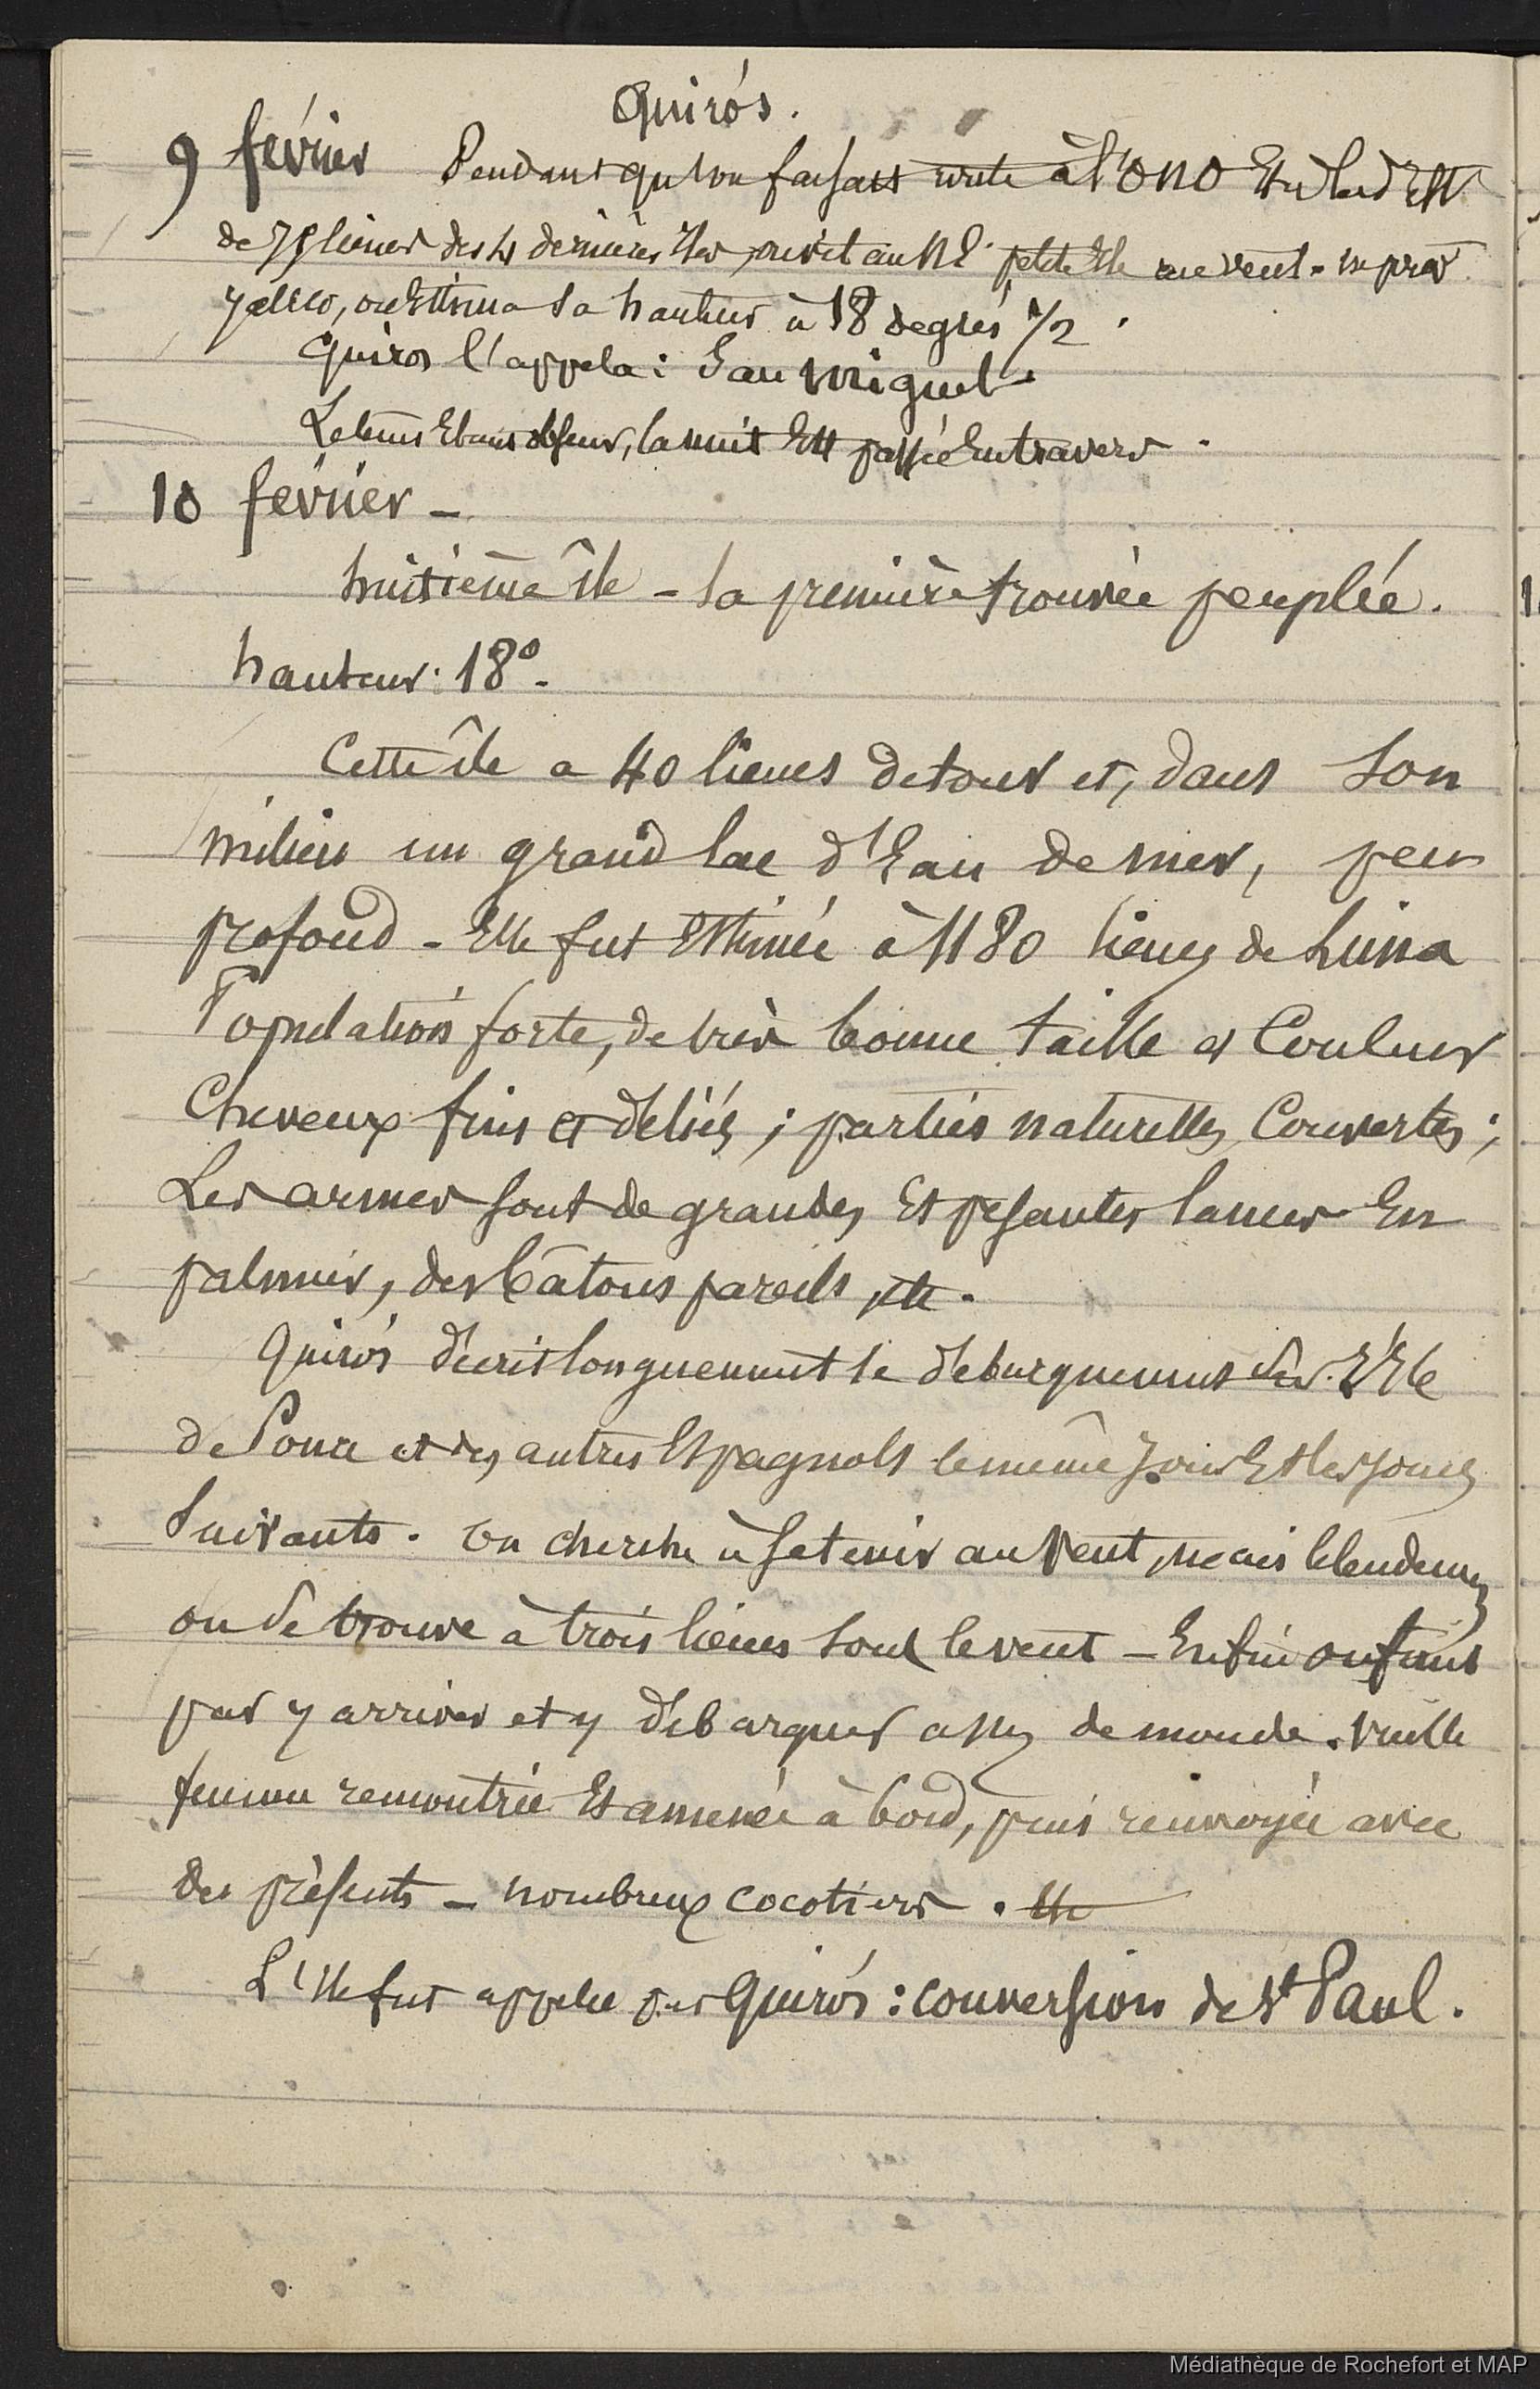 Quirós.
9 février Pendant qu'on faisait route à l'ONO
de 75 lieues des 4 dernières îles, on vit au NE petite île au vent
on estima sa hauteur à 18 degrés 1/2.
Quiros l'appela : San Miguel.
Le temps étant obscur, la nuit est passée en travers.
10 février -
huitième île - la première trouvée peuplée.
hauteur : 18°.
Cette île a 40 lieues de tour et, dans son
milieu un grand lac d'Eau de mer, peu
profond - Elle fut estimée à 1180 lieues de Lima
Population forte, de très bonne taille et Couleur
Cheveux fins et déliés ; parties naturelles Couvertes ;
Les armes sont de grandes Et pesantes lances En
palmier, des bâtons pareils, etc.
Quirós décrit longuement le débarquement
et des autres Espagnols le même jour Et les jours
suivants. On cherche à se tenir au vent, mais le lendemain
on se trouve à trois lieues sous le vent - Enfin on finit
par y arriver et y débarquer assez de monde. Vieille
femme rencontrée Et amenée à bord, puis renvoyée avec
des présents - nombreux cocotiers. etc
L'île fut appelée par Quirós : conversion de St Paul.
Médiathèque de Rochefort et MAP